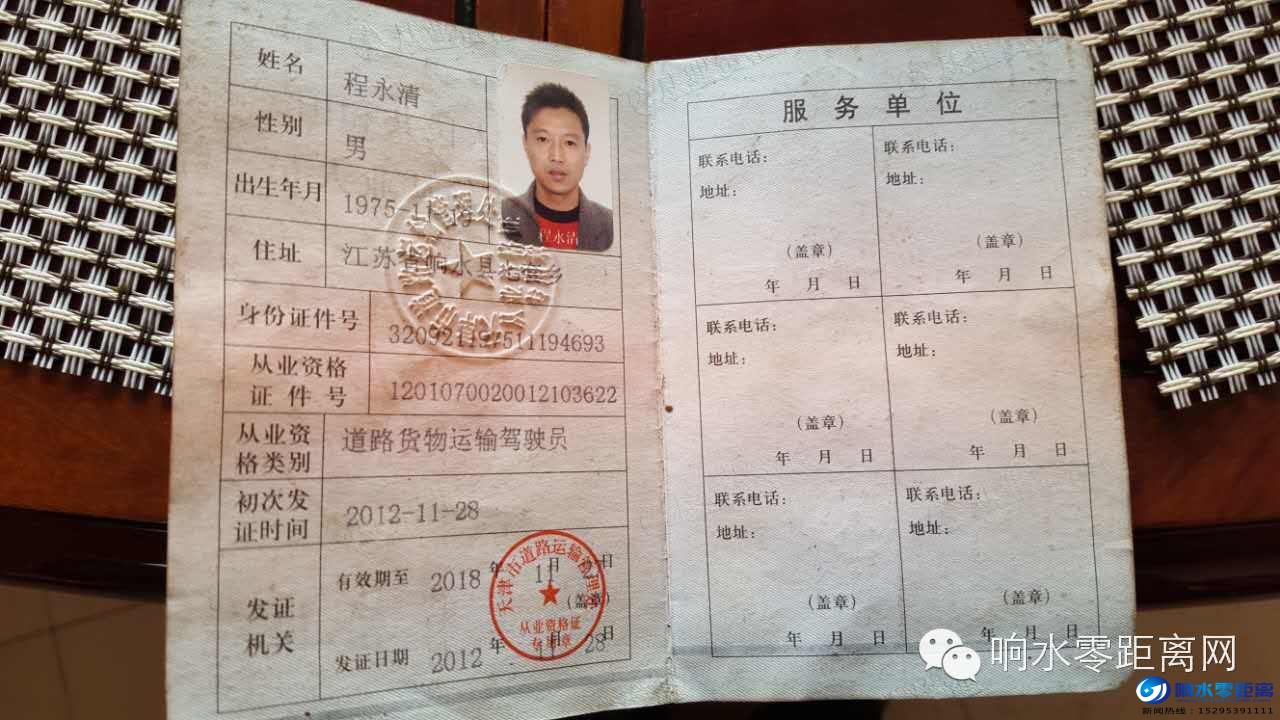 姓名 程永清
性别 男
出生年月 1975-11
住址 江苏省响水县
身份证件号 320921197511194693
从业资格
证件号 1201070020012103622
从业资
格类别 道路货物运输驾驶员
初次发
证时间 2012-11-28
发证
机关
有效期至 2018 年 11 月 日
(盖章)
发证日期 2012 年 11 月 28 日
程永清
天津市道路运输管理
从业资格证
专用章
服务单位
联系电话: 联系电话:
地址: 地址:
(盖章) (盖章)
年 月 日 年 月 日
联系电话: 联系电话:
地址: 地址:
(盖章) (盖章)
年 月 日 年 月 日
联系电话: 联系电话:
地址: 地址:
(盖章) (盖章)
年 月 日 年 月 日
响水零距离网
响水零距离
新闻热线:15295391111